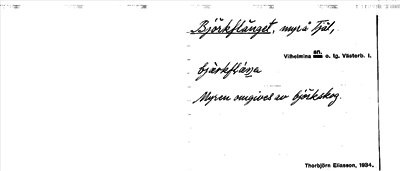 Björkflånget, myr å Tjäl,
Vilhelmina sn. o. tg. Västerb. l.
Myren omgives av björkskog.
Thorbjörn Eliasson, 1934.